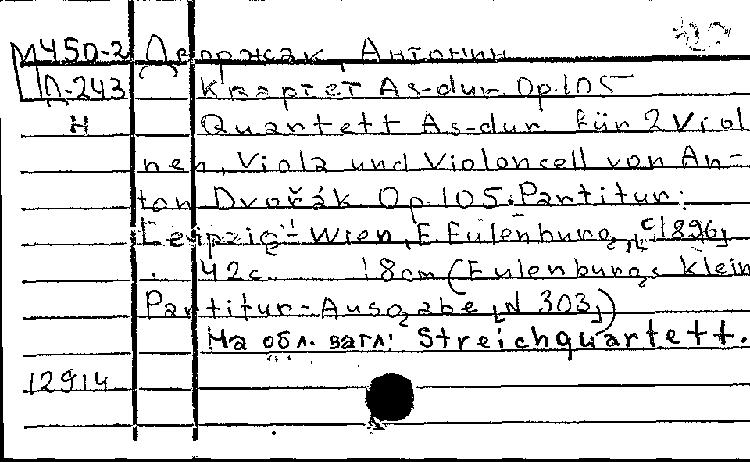 М450-2 Дворжак, Антонин
Д-243 Квартет As-dur Op.105
Н Quartett As-dur für 2 Viol
nen, Viola und Violoncell von An-
ton Dvořák Op.105. Partitur.
Leipzig-Wien, E. Eulenburg, [c1896]
42с. 18cm (Eulenburgs klein
Partitur-Ausgabe [N 303])
На обл. загл: Streichquartett.
12914